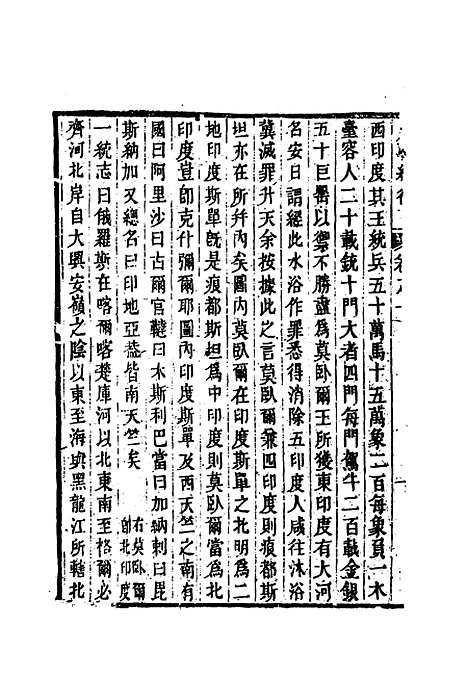 西印度其王統兵五十萬馬十五萬象二百每象負一木
臺容人二十載銃十門大者四門每門駕牛二百載金銀
五十巨罌以禦不勝盡為莫臥爾王所獲東印度有大河
名安日謂經此水浴作罪悉得消除五印度人咸往沐浴
冀滅罪升天余按據此之言莫臥爾兼四印度則痕都斯
坦亦在所并內矣圖內莫臥爾在印度斯單之北明為二
地印度斯單既是痕都斯坦為中印度則莫臥爾當為北
印度豈即克什彌爾耶圖內印度斯單及西天竺之南有
國曰阿里沙曰古爾官韃曰木斯利巴當曰加納剌曰毘
斯納加又總名曰印地亞葢皆南天竺矣
右莫臥爾
即北印度
一統志曰俄羅斯在喀爾喀楚庫河以北東南至格爾必
齊河北岸自大興安嶺之陰以東至海與黑龍江所轄北